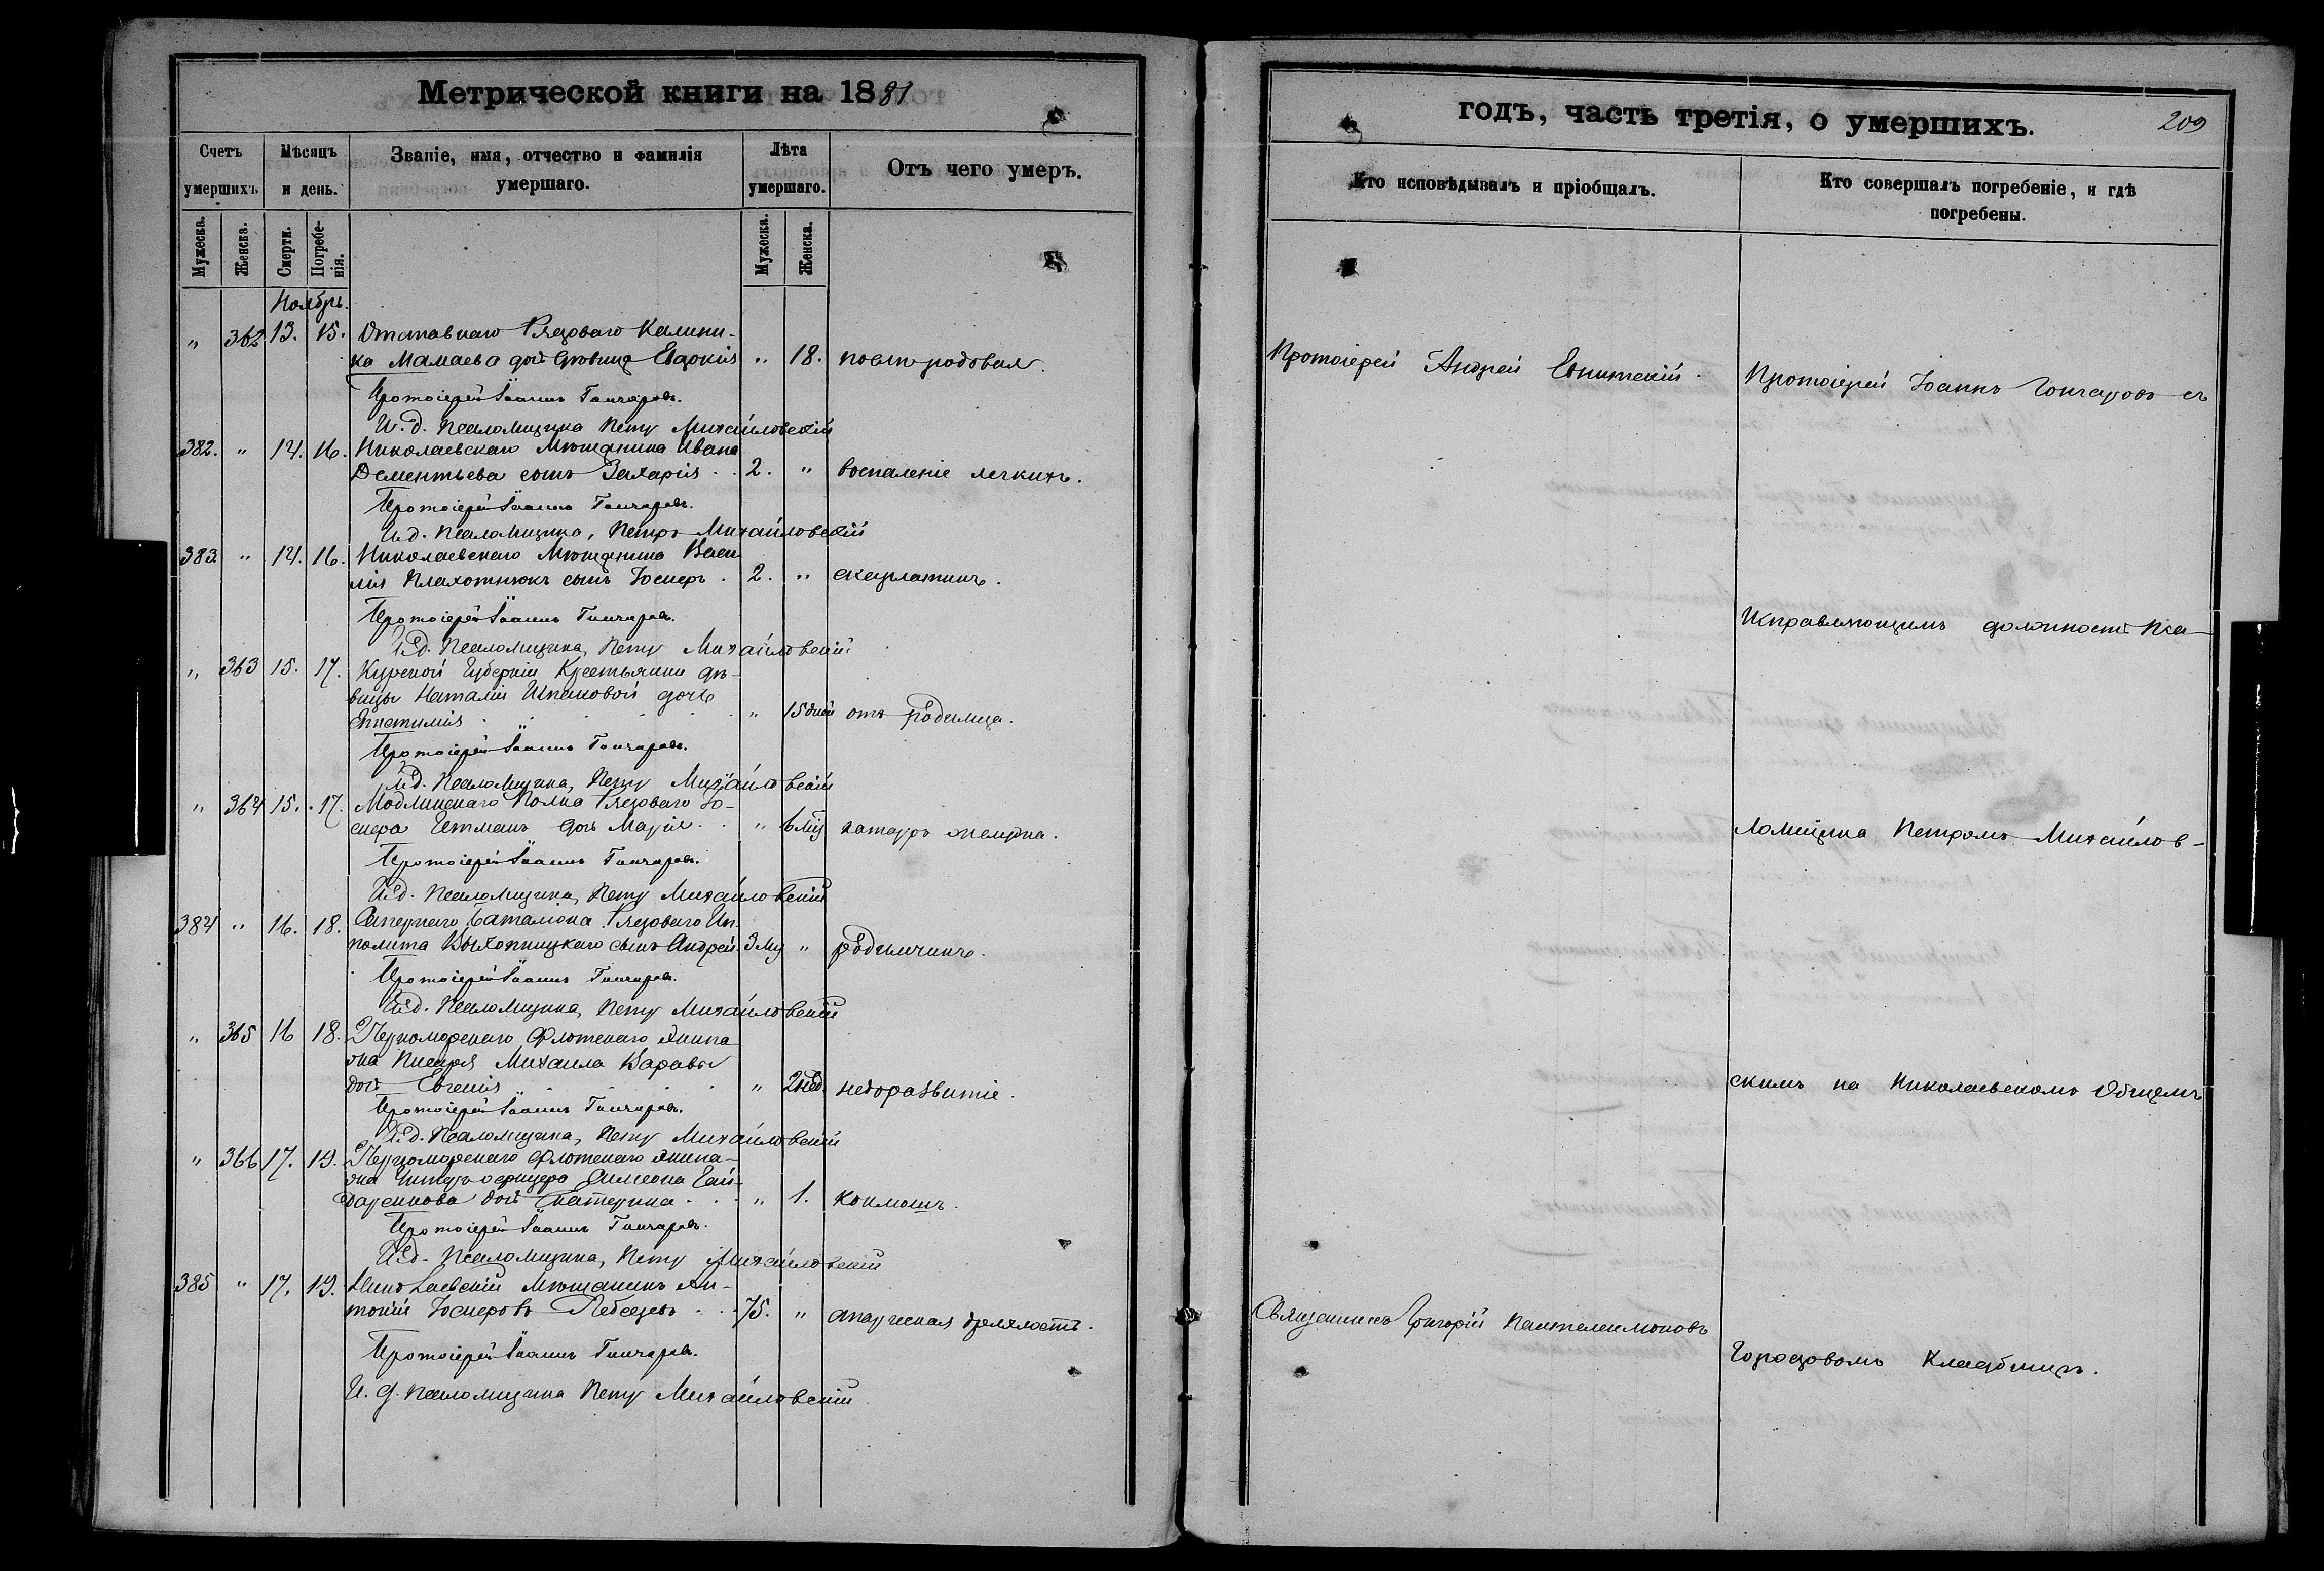 Метрической книги на 1881
Счетъ умершихъ.
Мѣсяцъ и день.
Званіе, имя, отчество и фамилія
умершаго.
Лѣта умершаго.
Отъ чего умеръ.
Мужеска.
Женска.
Смерти.
Погребенія.
Мужеска.
Женска.
Ноябрь.
" 362 13. 15. Отставнаго Рядоваго Калини-
ка Мамаева дочь дѣвица Евдокія " 18. послѣродовая.
Протоіерей Іоаннъ Гончаровъ.
И. д. Псаломщика Петръ Михайловскій
382. " 14. 16. Николаевскаго Мѣщанина Ивана
Дементьева сынъ Захарія 2. " воспаленіе легкихъ.
Протоіерей Іоаннъ Гончаровъ.
И. д. Псаломщика, Петръ Михайловскій
383 " 14. 16. Николаевскаго Мѣщанина Васи
лія Плахотнюкъ сынъ Іосифъ 2. " скарлатинъ.
Протоіерей Іоаннъ Гончаровъ.
И. д. Псаломщика, Петръ Михайловскій
" 363 15. 17. Курской Губерніи Крестьянки дѣ-
вицы Наталіи Шпаковой дочь
" 15 дней отъ родимца.
Протоіерей Іоаннъ Гончаровъ.
И. д. Псаломщика, Петръ Михайловскій
" 364 15. 17. Модлинскаго Полка Рядоваго Іо-
сифа Гетманъ дочь Марія " 6 мѣс катарръ желудка.
Протоіерей Іоаннъ Гончаровъ.
И. д. Псаломщика, Петръ Михайловскій
384 " 16. 18. Сапернаго Баталіона Рядоваго Ип-
полита сынъ Андрей 3 мѣс " родимчикъ.
Протоіерей Іоаннъ Гончаровъ.
И. д. Псаломщика, Петръ Михайловскій
" 365 16 18. Черноморскаго Флотскаго Экипа
жа Писаря Михаила
дочь Евгенія " 2 нед неборазвитіе.
Протоіерей Іоаннъ Гончаровъ.
И. д. Псаломщика, Петръ Михайловскій
" 366 17. 19. Черноморскаго Флотскаго Экипа-
жа Унтеръ офицера Симеона Гай-
даренкова дочь Екатерина " 1. коклюшъ.
Протоіерей Іоаннъ Гончаровъ.
И. д. Псаломщика, Петръ Михайловскій
385 " 17. 19. Николаевскій Мѣщанинъ Ан-
тоній Іосифовъ 75. " старческая дряхлость.
Протоіерей Іоаннъ Гончаровъ.
И. д. Псаломщика Петръ Михайловскій
годъ, часть третія, о умершихъ.
209
Кто исповѣдывалъ и пріобщалъ.
Кто совершалъ погребеніе, и гдѣ
погребены.
Протоіерей Андрей
Протоіерей Іоаннъ Гончаровъ съ
Исправляющимъ должность Пса-
ломщика Петромъ Михайлов-
скимъ на Николаевскомъ Общемъ
Священникъ Григорій Пантелеимоновъ
Городовомъ Кладбищѣ.